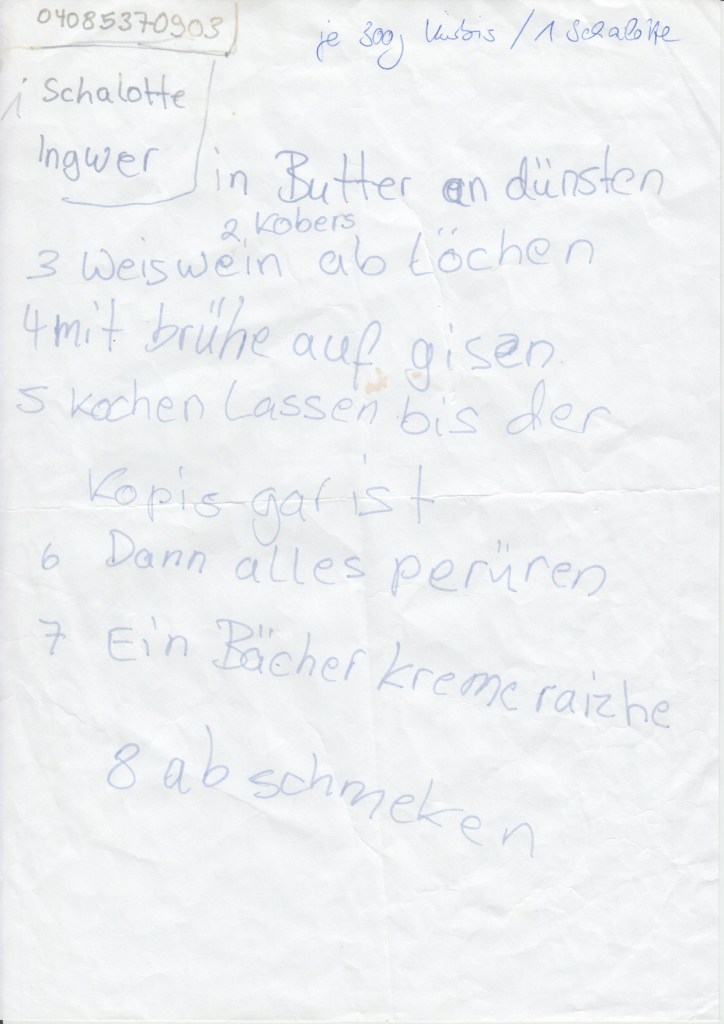 04085370903
je 300g Kürbis / 1 Schalotte
1 Schalotte
Ingwer
in Butter an dünsten
2 Kobers
3 Weiswein ab löchen
4 mit brühe auf gisen
5 kochen Lassen bis der
Kopis gar ist
6 Dann alles perüren
7 Ein Bächer kreme raizhe
8 ab schmeken